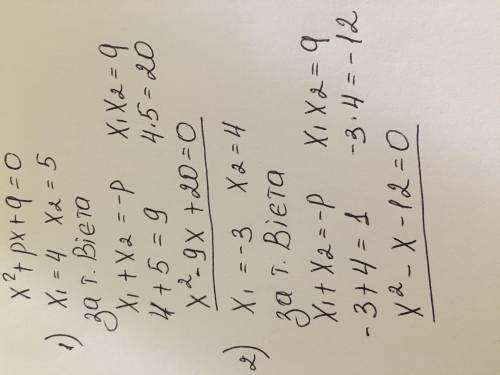 x² + px + q = 0
1) x₁ = 4 x₂ = 5
За т. Вієта
x₁ + x₂ = -p x₁x₂ = q
4 + 5 = 9 4·5 = 20
x² - 9x + 20 = 0
2) x₁ = -3 x₂ = 4
За т. Вієта
x₁ + x₂ = -p x₁x₂ = q
-3 + 4 = 1 -3·4 = -12
x² - x - 12 = 0